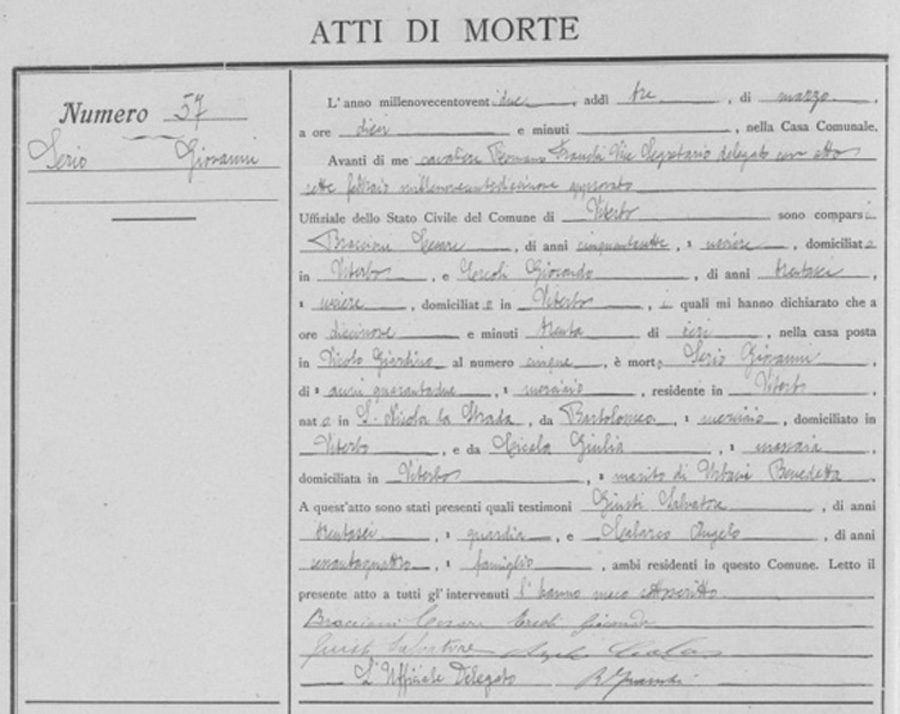 ATTI DI MORTE
Numero 57
Serio Giovanni
L'anno millenovecentovent due, addì tre, di marzo,
a ore dieci e minuti , nella Casa Comunale.
Avanti di me cavaliere Romano Vice Segretario delegato con atto
sette febbraio millenovecentodicinove approvato
Uffiziale dello Stato Civile del Comune di Viterbo sono compars i
Cesare, di anni cinquantasette, usciere, domiciliat o
in Viterbo, e Ercoli Giocondo, di anni trentasei,
usciere, domiciliat o in Viterbo, i quali mi hanno dichiarato che a
ore diecinove e minuti trenta di ieri, nella casa posta
in Vicolo Giardino al numero cinque, è mort o Serio Giovanni,
di anni quarantadue, merciaio, residente in Viterbo,
nat o in S. Nicola la Strada, da Bartolomeo, merciaio, domiciliato in
Viterbo, e da Giulia, massaia,
domiciliata in Viterbo, marito di Urbani Benedetta.
A quest'atto sono stati presenti quali testimoni Giusti Salvatore, di anni
trentasei, guardia, e Angelo, di anni
sessantaquattro, famiglio, ambi residenti in questo Comune. Letto il
presente atto a tutti gl'intervenuti l'hanno meco sottoscritto.
Cesare Ercoli Giocondo
Giusti Salvatore Angelo
L'Ufficiale Delegato